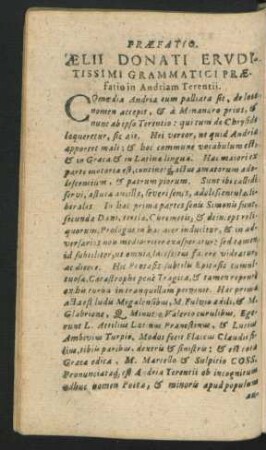 PRÆFATIO.
ÆLII DONATI ERVDI-
TISSIMI GRAMMATICI PRÆ-
fatio in Andriam Terentii.
COmœdia Andria cum palliata sit, de loco
nomen accepit, & à Menandro prius, &
nunc ab ipso Terentio: qui tum de Chryside
loqueretur, sic ait. Hei vereor, ne quid Andria
apportet mali: & hoc commune vocabulum est:
& in Græca & in Latina lingua. Hæc maiori ex
parte motoria est, continetq́; actus amatorum ado-
lescentium, & patrum piorum. Sunt ibi callidi
servi, astuta ancilla, severi senes, adolescentuli li-
berales. In hac prima partes senis Simonis sunt,
secunda Davi, tertia Chremetis, & deinceps reli-
quorum. Prologus in hac acer inducitur, & in ad-
versarios non mediocriter exasperatur: sed tamen
id
ac dicere. Hic Protasis subtilis Epitasis tumul-
tuosa, Catastrophe penè Tragica, & tamen repentè
ex his turbis in tranquillum pervenit. Hæc prima
acta est ludis Megalensibus, M. Fulvio ædili, & M.
Glabrione, Q. Minutio Valerio curulibus. Ege-
runt L. Atilius Latinus Prænestinus, & Lucius
Ambivius Turpio. Modos fecit Flaccus Claudii fi-
lius, tibiis paribus, dextris & sinistris: & est tota
Græca edita, M. Marcello & Sulpitio COSS.
Pronunciataq́; est Andria Terentii ob incognitum
adhuc nomen Poëtæ, & minoris apud populum